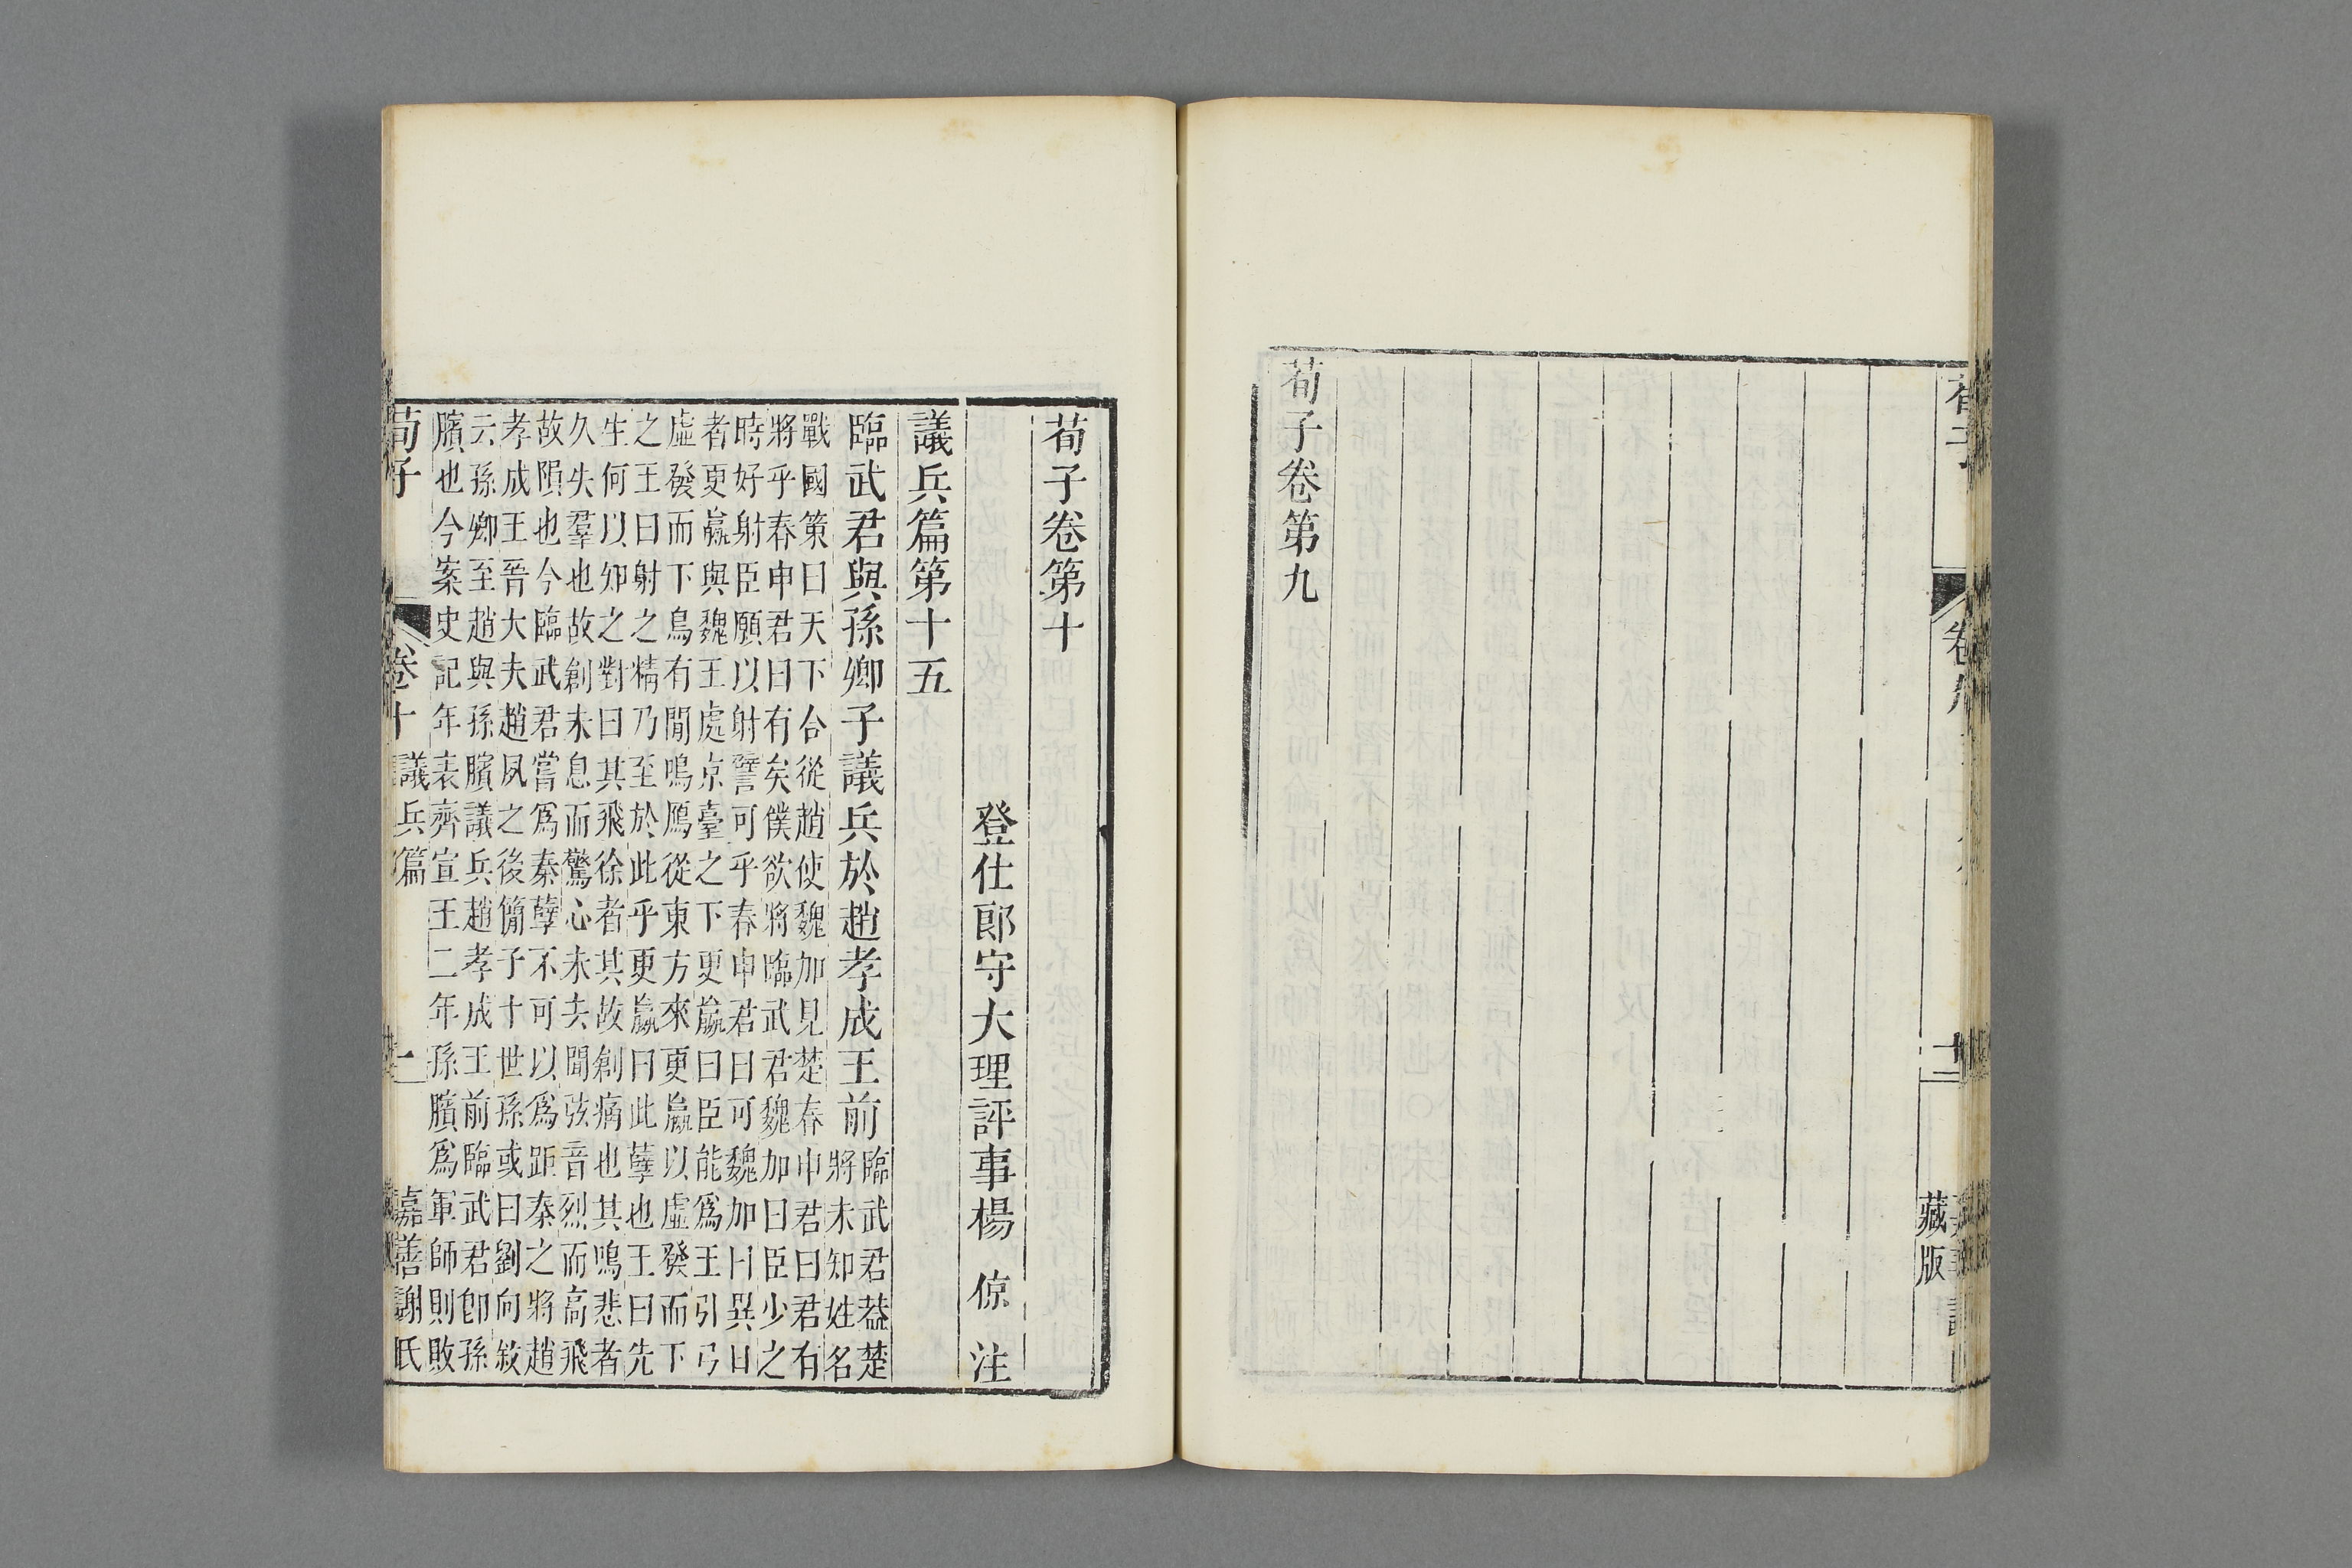 藏版
荀子卷第九
荀子卷第十
登仕郎守大理評事楊 倞 注
議兵篇第十五
臨武君與孫卿子議兵於趙孝成王前
臨武君蓋楚
將未知姓名
戰國策曰天下合從趙使魏加見楚春申君曰君有
將乎春申君曰有矣僕欲將臨武君魏加曰臣少之
時好射臣願以射譬可乎春申君曰可魏加曰異日
者更羸與魏王處京臺之下更羸曰臣能爲王引弓
虛發而下鳥有閒鳴鴈從東方來更羸以虛發而下
之王曰射之精乃至於此乎更羸曰此孽也王曰先
生何以知之對曰其飛徐者其故創痛也其鳴悲者
久失羣也故創未息而驚心未去聞弦音烈而高飛
故隕也今臨武君嘗爲秦孽不可以爲距秦之將趙
孝成王晉大夫趙夙之後簡子十世孫或曰劉向敘
云孫卿至趙與孫臏議兵趙孝成王前臨武君卽孫
臏也今案史記年表齊宣王二年孫臏爲軍師則敗
荀子 卷十 議兵篇 一 嘉善謝氏